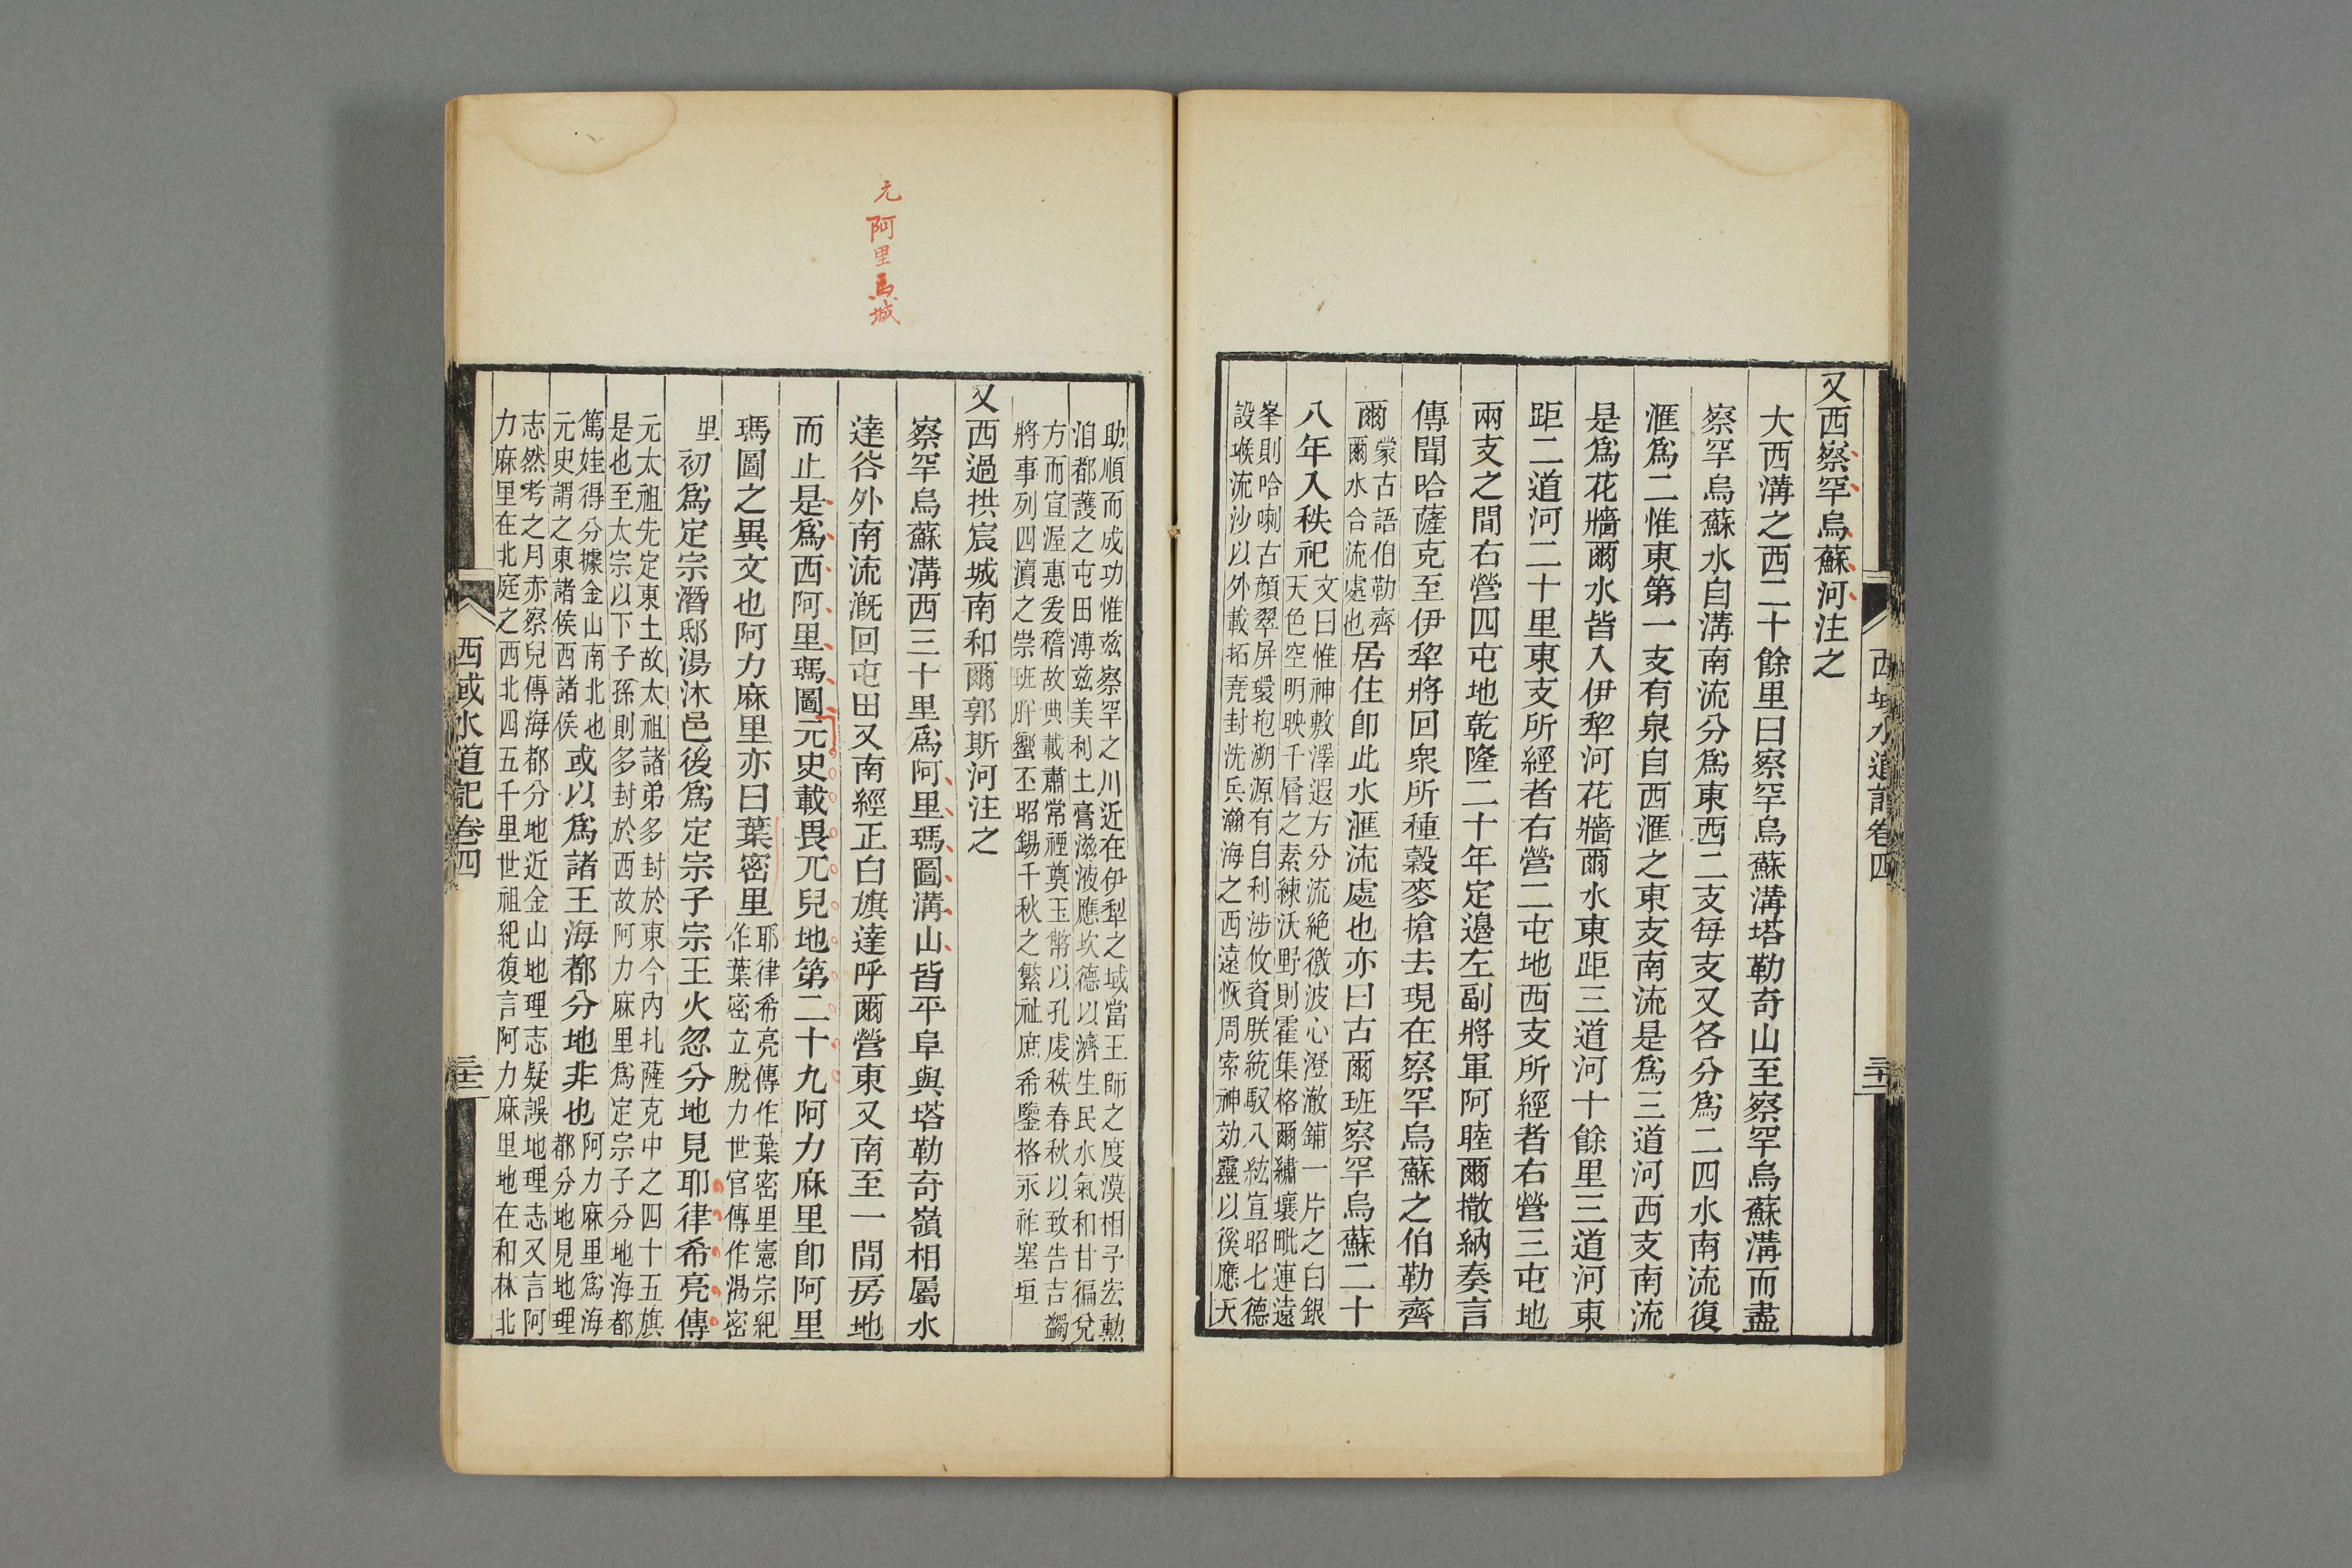 又西察罕烏蘇河注之
大西溝之西二十餘里曰察罕烏蘇溝塔勒奇山至察罕烏蘇溝而盡
察罕烏蘇水自溝南流分爲東西二支每支又各分爲二四水南流復
滙爲二惟東第一支有泉自西滙之東支南流是爲三道河西支南流
是爲花牆爾水皆入伊犂河花牆爾水東距三道河十餘里三道河東
距二道河二十里東支所經者右營二屯地西支所經者右營三屯地
兩支之間右營四屯地乾隆二十年定邊左副將軍阿睦爾撒納奏言
傳聞哈薩克至伊犂將回衆所種穀麥搶去現在察罕烏蘇之伯勒齊
爾蒙古語伯勒齊爾水合流處也居住卽此水滙流處也亦曰古爾班察罕烏蘇二十
八年入秩祀文曰惟神敷澤遐方分流絶徼波心澄澈鋪一片之白銀天色空明映千層之素練沃野則霍集格爾繡壤毗連遠
峯則哈喇古顔翠屏環抱溯源有自利涉攸資朕統馭八紘宣昭七德
設堠流沙以外載拓堯封洗兵瀚海之西遠恢周索神効靈以徯應天
助順而成功惟兹察罕之川近在伊犁之域當王師之度漠相予宏勳
洎都護之屯田溥兹美利土膏滋液應坎德以濟生民水氣和甘徧兌
方而宣渥惠爰稽故典載肅常禋奠玉幣以孔虔秩春秋以致告吉蠲
將事列四瀆之崇班肸蠁丕昭錫千秋之繁祉庶希鑒格永祚塞垣
又西過拱宸城南和爾郭斯河注之
察罕烏蘇溝西三十里爲阿里瑪圖溝山皆平阜與塔勒奇嶺相屬水
達谷外南流漑回屯田又南經正白旗達呼爾營東又南至一間房地
而止是爲西阿里瑪圖元史載畏兀兒地第二十九阿力麻里卽阿里
瑪圖之異文也阿力麻里亦曰葉密里耶律希亮傳作葉密里憲宗紀作葉密立脫力世官傳作渴密
里初爲定宗潛邸湯沐邑後爲定宗子宗王火忽分地見耶律希亮傳
元太祖先定東土故太祖諸弟多封於東今內扎薩克中之四十五旗
是也至太宗以下子孫則多封於西故阿力麻里爲定宗子分地海都
篤娃得分據金山南北也元史謂之東諸侯西諸侯或以爲諸王海都分地非也阿力麻里爲海都分地見地理
志然考之月赤察兒傳海都分地近金山地理志疑誤地理志又言阿
力麻里在北庭之西北四五千里世祖紀復言阿力麻里地在和林北
西域水道記卷四
西域水道記卷四
元阿里馬城